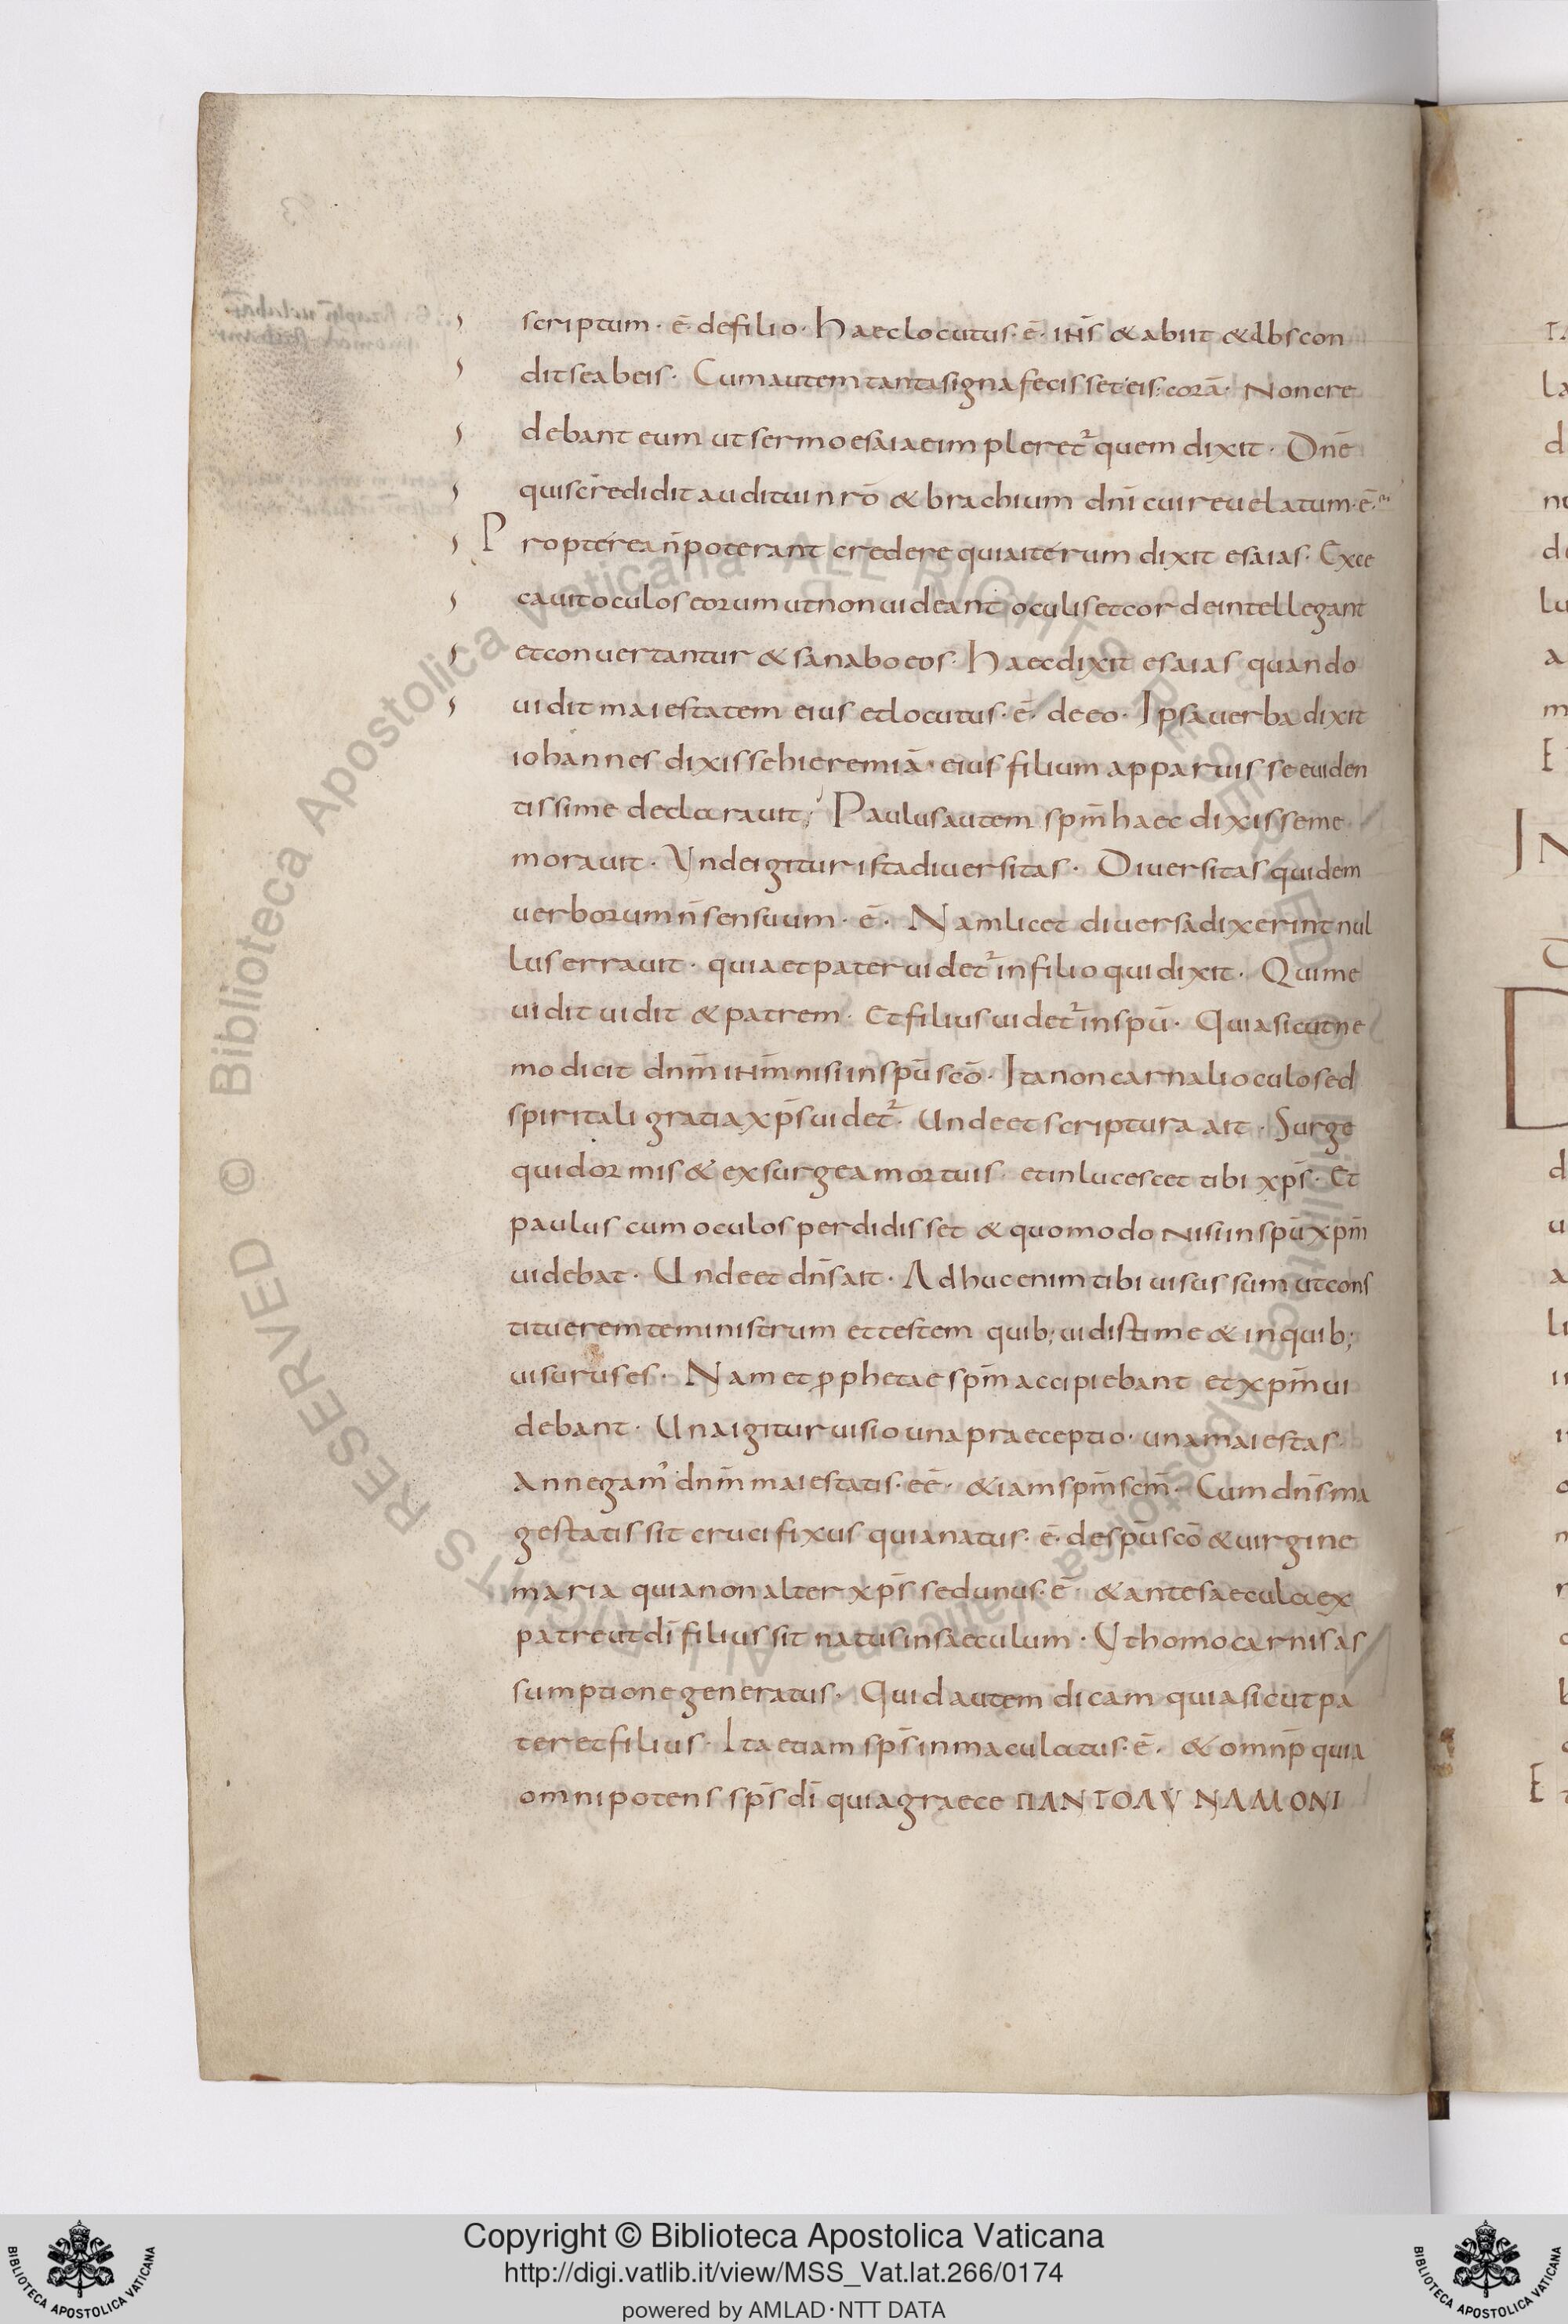 scriptum · ē · de filio · haec locutus · ē · ihs̄ & abiit & abscon
dit se ab eis · Cum autem tanta signa fecisset eis corā · Non cre
debant eum ut sermo esaiae impleretur quem dixit · Dnē
quis credidit auditui nrō & brachium dnī cui reuelatum · ē ·
Propterea n̄ poterant credere quia iterum dixit esaias · Exce
cauit oculos eorum ut non uideant oculis et corde intellegant
et conuertantur & sanabo eos · haec dixit esaias quando
uidit maiestatem eius et locutus · ē · de eo · Ipsa uerba dixit
iohannes dixisse hieremiā · eius filium apparuisse euiden
tissime declarauit; Paulus autem spm̄ haec dixisse me
morauit · Unde igitur ista diuersitas · Diuersitas quidem
uerborum n̄ sensuum · ē · Nam licet diuersa dixerint nul
lus errauit · quia et pater uidet² in filio qui dixit · Qui me
uidit uidit & patrem · Et filius uidet² in spū · Quia sicut ne
mo dicit dnm̄ ihm̄ nisi in spū scō · Ita non carnali oculo sed
spiritali gratia xps̄ uidet² · Unde et scriptura ait · Surge
qui dormis & exsurge a mortuis · et inlucescet tibi xps̄ · Et
paulus cum oculos perdidisset & quomodo nisi in spū xpm̄
uidebat · Unde et dns̄ ait · Ad huc enim tibi uisus sum ut cons
tituerem te ministrum et testem quib; uidisti me & in quib;
uisurus es · Nam et ꝓphetae spm̄ accipiebant et xpm̄ ui
debant · Una igitur uisio una praeceptio · una maiestas ·
An negam' dnm̄ maiestatis · eē · & iam spm̄ scm̄ · Cum dns̄ ma
gestatis sit crucifixus quia natus · ē · de spū scō & uirgine
maria quia non alter xps̄ sed unus · ē · & ante saecula ex
patre ut dī filius sit natus in saeculum · Ut homo carnis as
sumptione generatus · Quid autem dicam quia sicut pa
ter et filius · Ita etiam sps̄ inmaculatus · ē · & omnp̄ quia
omnipotens sps̄ dī quia graece ΠΑΝΤΟΔΥ ΝΑΜΟΝΙ
© Biblioteca Apostolica Vaticana ALL RIGHTS RESERVED
Copyright © Biblioteca Apostolica Vaticana
http://digi.vatlib.it/view/MSS_Vat.lat.266/0174
powered by AMLAD·NTT DATA
BIBLIOTECA APOSTOLICA VATICANA
BIBLIOTECA APOSTOLICA VATICANA